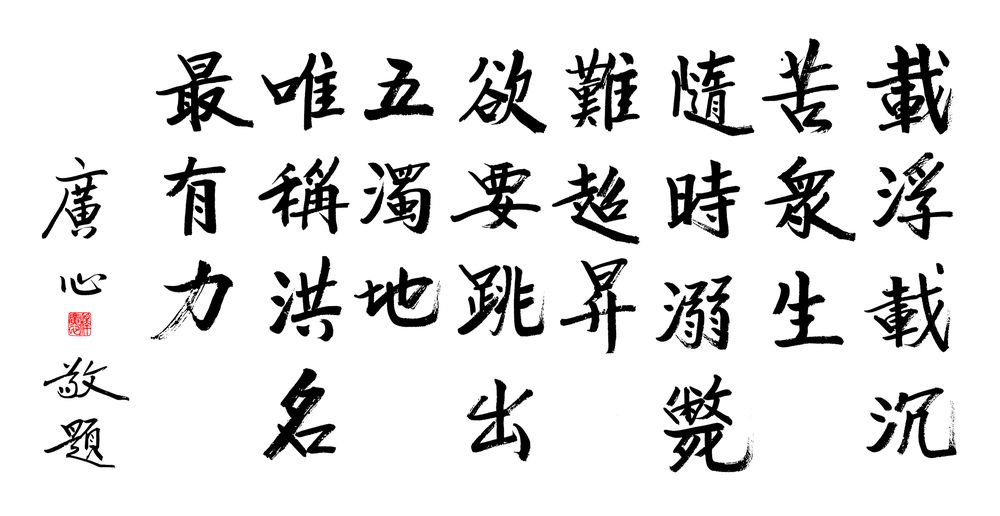 載浮載沉
苦眾生
隨時溺斃
難超昇
欲要跳出
五濁地
唯稱洪名
最有力
廣心敬題